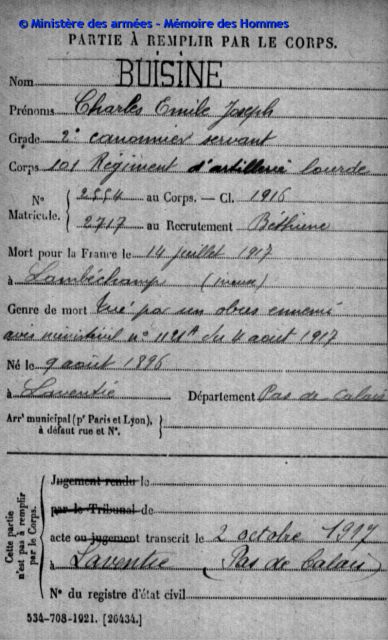 © Ministère des armées - Mémoire des Hommes
PARTIE À REMPLIR PAR LE CORPS.
Nom BUISINE
Prénoms Charles Emile Joseph
Grade 2e canonnier servant
Corps 101 Régiment d'artillerie lourde
N° Matricule. { 2554 au Corps. — Cl. 1916
2717 au Recrutement Béthune
Mort pour la France le 14 juillet 1917
à Lambéchamp (Meuse)
Genre de mort Tué par un obus ennemi
avis ministériel n° du 4 aout 1917
Né le 9 août 1896
à Laventie Département Pas de Calais
Arrt municipal (pr Paris et Lyon), }
à défaut rue et N°.
Cette partie n'est pas à remplir par le Corps.
Jugement rendu le
par le Tribunal de
acte ou jugement transcrit le 2 octobre 1917
à Laventie (Pas de Calais)
N° du registre d'état civil
534-708-1921. [26434.]